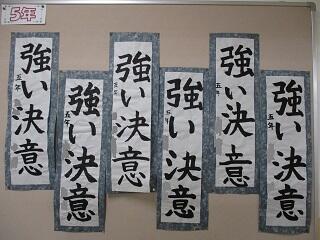 5年
強い決意
五年
強い決意
五年
強い決意
五年
強い決意
五年
強い決意
五年
強い決意
五年